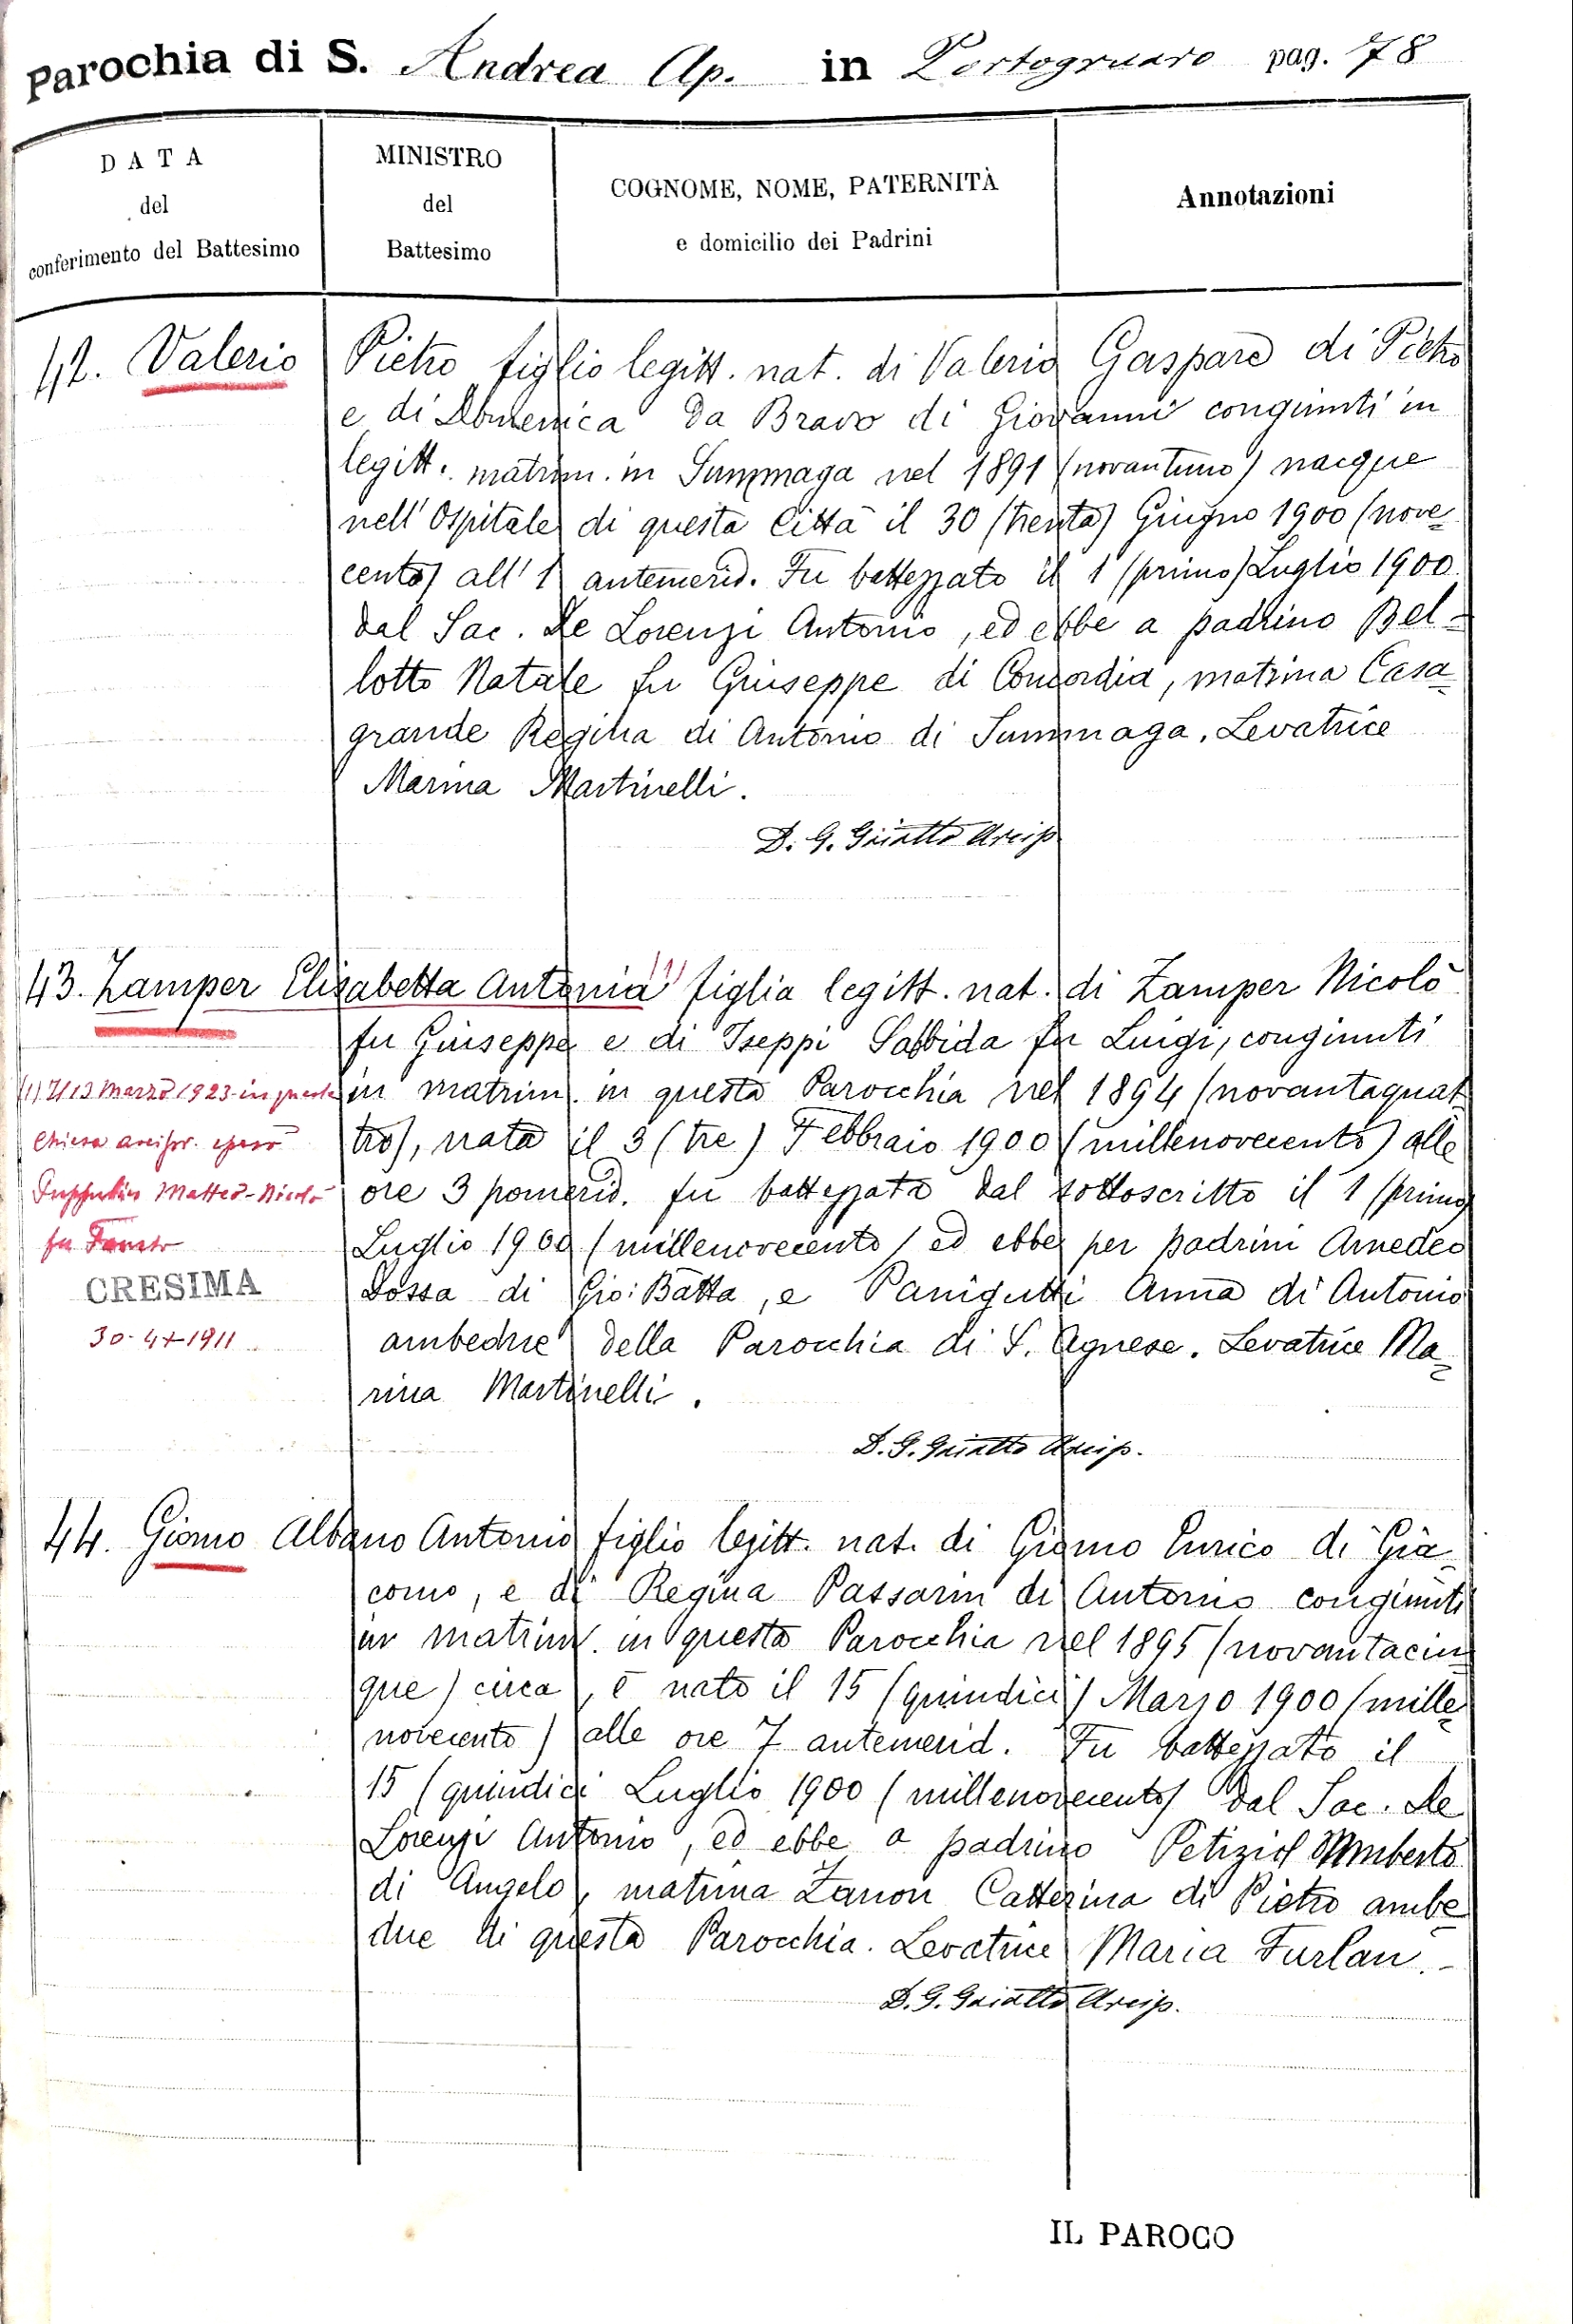 Parochia di S. Andrea Ap. in Portogruaro pag. 78
DATA
del
conferimento del Battesimo
MINISTRO
del
Battesimo
COGNOME, NOME, PATERNITÀ
e domicilio dei Padrini
Annotazioni
42. Valerio Pietro figlio legitt. nat. di Valerio Gaspare di Pietro
e di Domenica Da Bravo di Giovanni congiunti in
legitt. matrim. in Summaga nel 1891 (novantuno) nacque
nell'Ospitale di questa Città il 30 (trenta) Giugno 1900 (nove
cento) all'1 antemerid. Fu battezzato il 1 (primo) Luglio 1900
dal Sac. De Lorenzi Antonio, ed ebbe a padrino Bel-
lotto Natale fu Giuseppe di Concordia, matrina Casa
grande Regina di Antonio di Summaga. Levatrice
Marina Martinelli.
D. G. Arcip
43. Zamper Elisabetta Antonia (1) figlia legitt. nat. di Zamper Nicolò
fu Giuseppe e di Iseppi Sabbida fu Luigi, congiunti
in matrim. in questa Parocchia nel 1894 (novantaquat
tro), nata il 3 (tre) Febbraio 1900 (millenovecento) alle
ore 3 pomerid. fu battezzata dal sottoscritto il 1 (primo
Luglio 1900 (millenovecento) ed ebbe per padrini Amedeo
Dossa di Gio: Batta, e Panigutti Anna di Antonio
ambedue della Parocchia di S. Agnese. Levatrice Ma
rina Martinelli.
(1) Il 13 Marzo 1923 in questa
Chiesa arcipr. sposò
Matteo-Nicolò
fu
CRESIMA
30-4-1911
D. G. Arcip.
44. Giomo Albano Antonio figlio legitt. nat. di Giomo Enrico di Gia
como, e di Regina Passarin di Antonio congiunti
in matrim. in questa Parocchia nel 1895 (novantacin
que) circa, è nato il 15 (quindici) Marzo 1900 (mille
novecento) alle ore 7 antemerid. Fu battezzato il
15 (quindici Luglio 1900 (millenovecento) dal Sac. De
Lorenzi Antonio, ed ebbe a padrino Petiziol Umberto
di Angelo, matrina Zanon Catterina di Pietro ambe
due di questa Parocchia. Levatrice Maria Furlan.
D. G. Arcip.
IL PAROCO